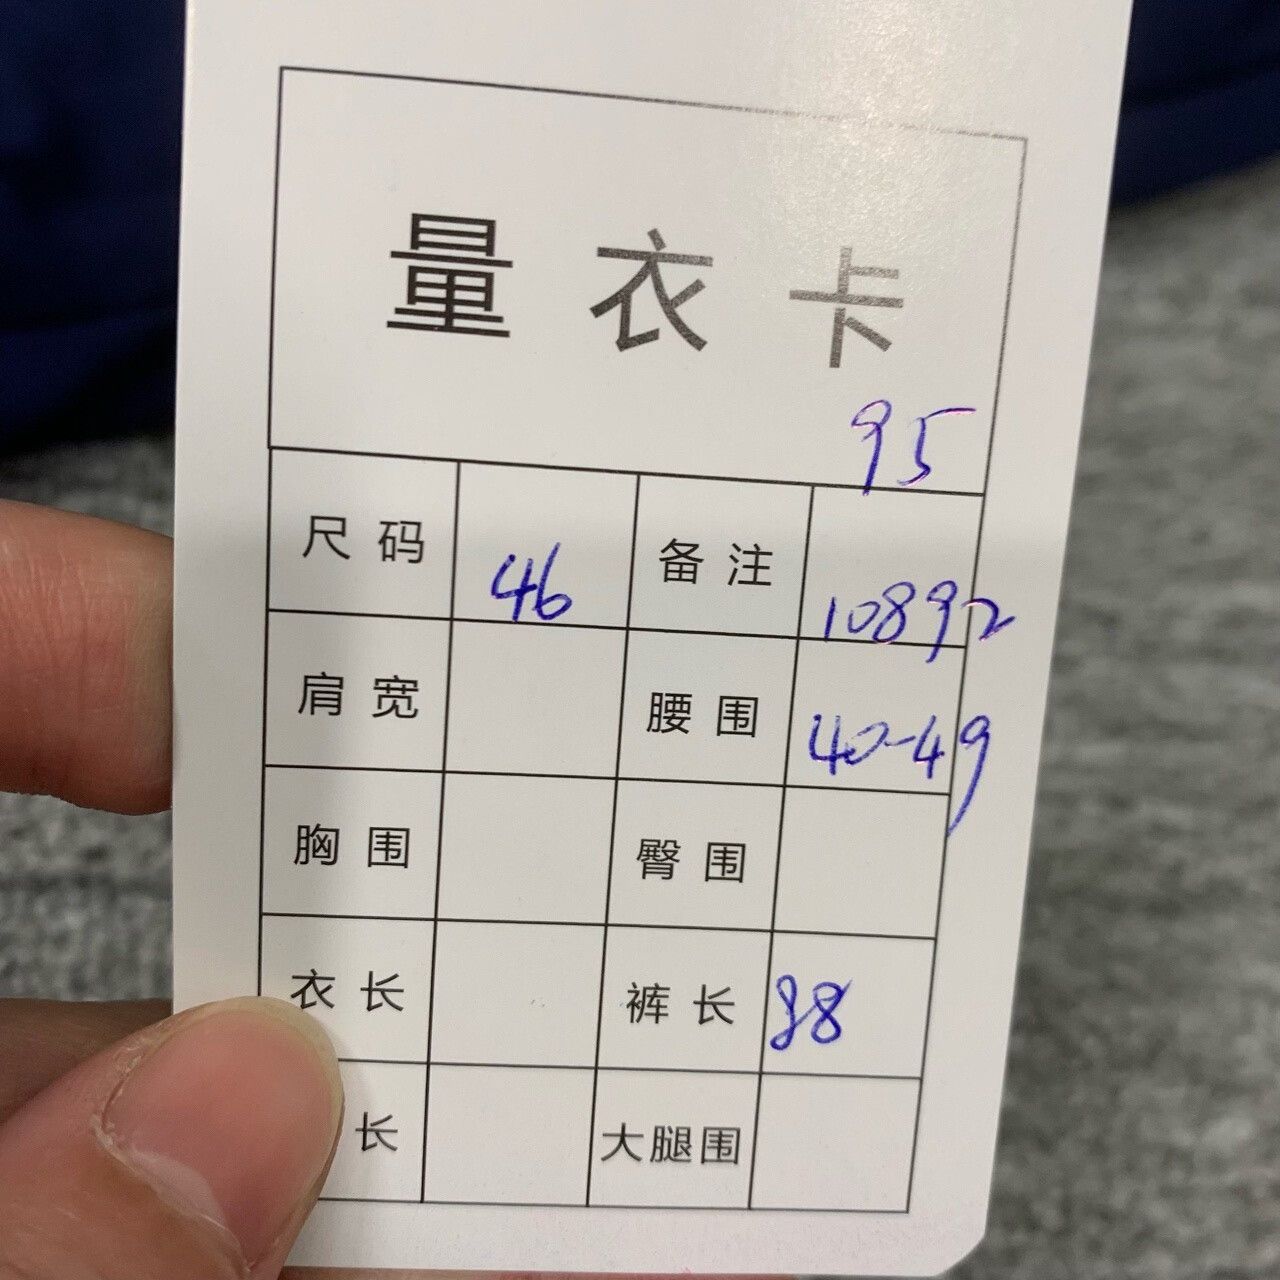 量衣卡
95
尺码 46 备注 10892
肩宽 腰围 40-49
胸围 臀围
衣长 裤长 98
长 大腿围